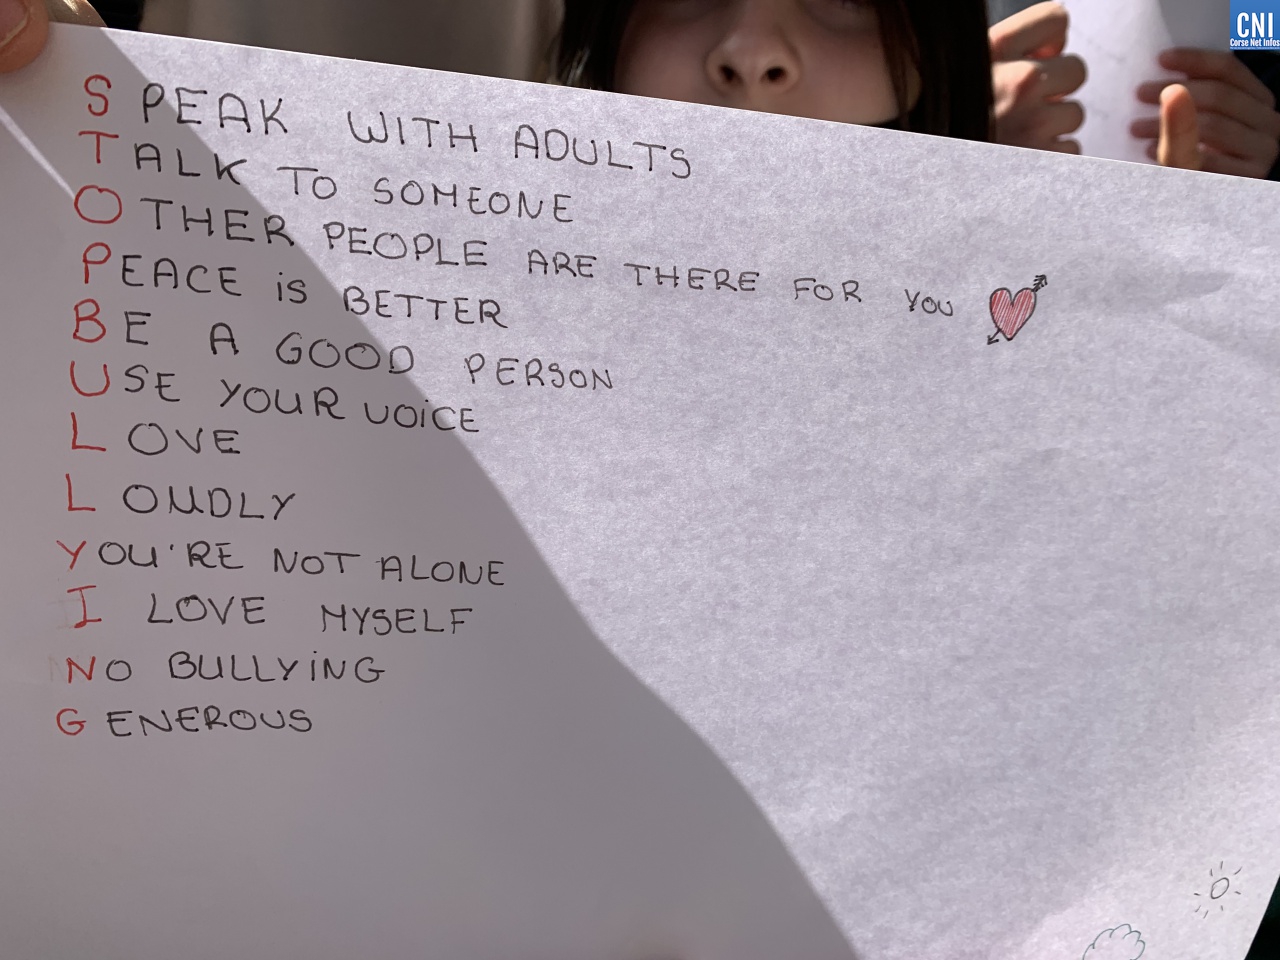 CNI
Corse Net Infos
SPEAK WITH ADULTS
TALK TO SOMEONE
OTHER PEOPLE ARE THERE FOR YOU
PEACE iS BETTER
BE A GOOD PERSON
USE YOUR VOiCE
LOVE
LOUDLY
YOU'RE NOT ALONE
I LOVE MYSELF
NO BULLYiNG
GENEROUS